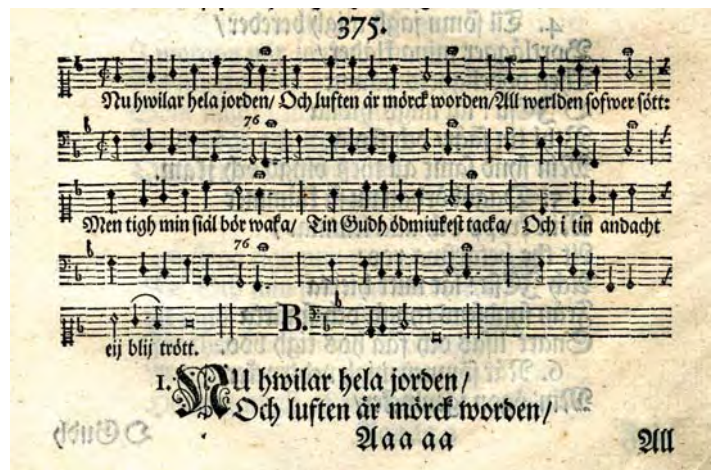 375.
Nu hwilar hela jorden/ Och luften är mörck worden/ All werlden sofwer sött:
76
Men tigh min siäl bör waka/ Tin Gudh ödmiukest tacka/ Och i tin andacht
76
eij blij trött.
B.
1. NU hwilar hela jorden/
Och luften är mörck worden/
Aaa aa All